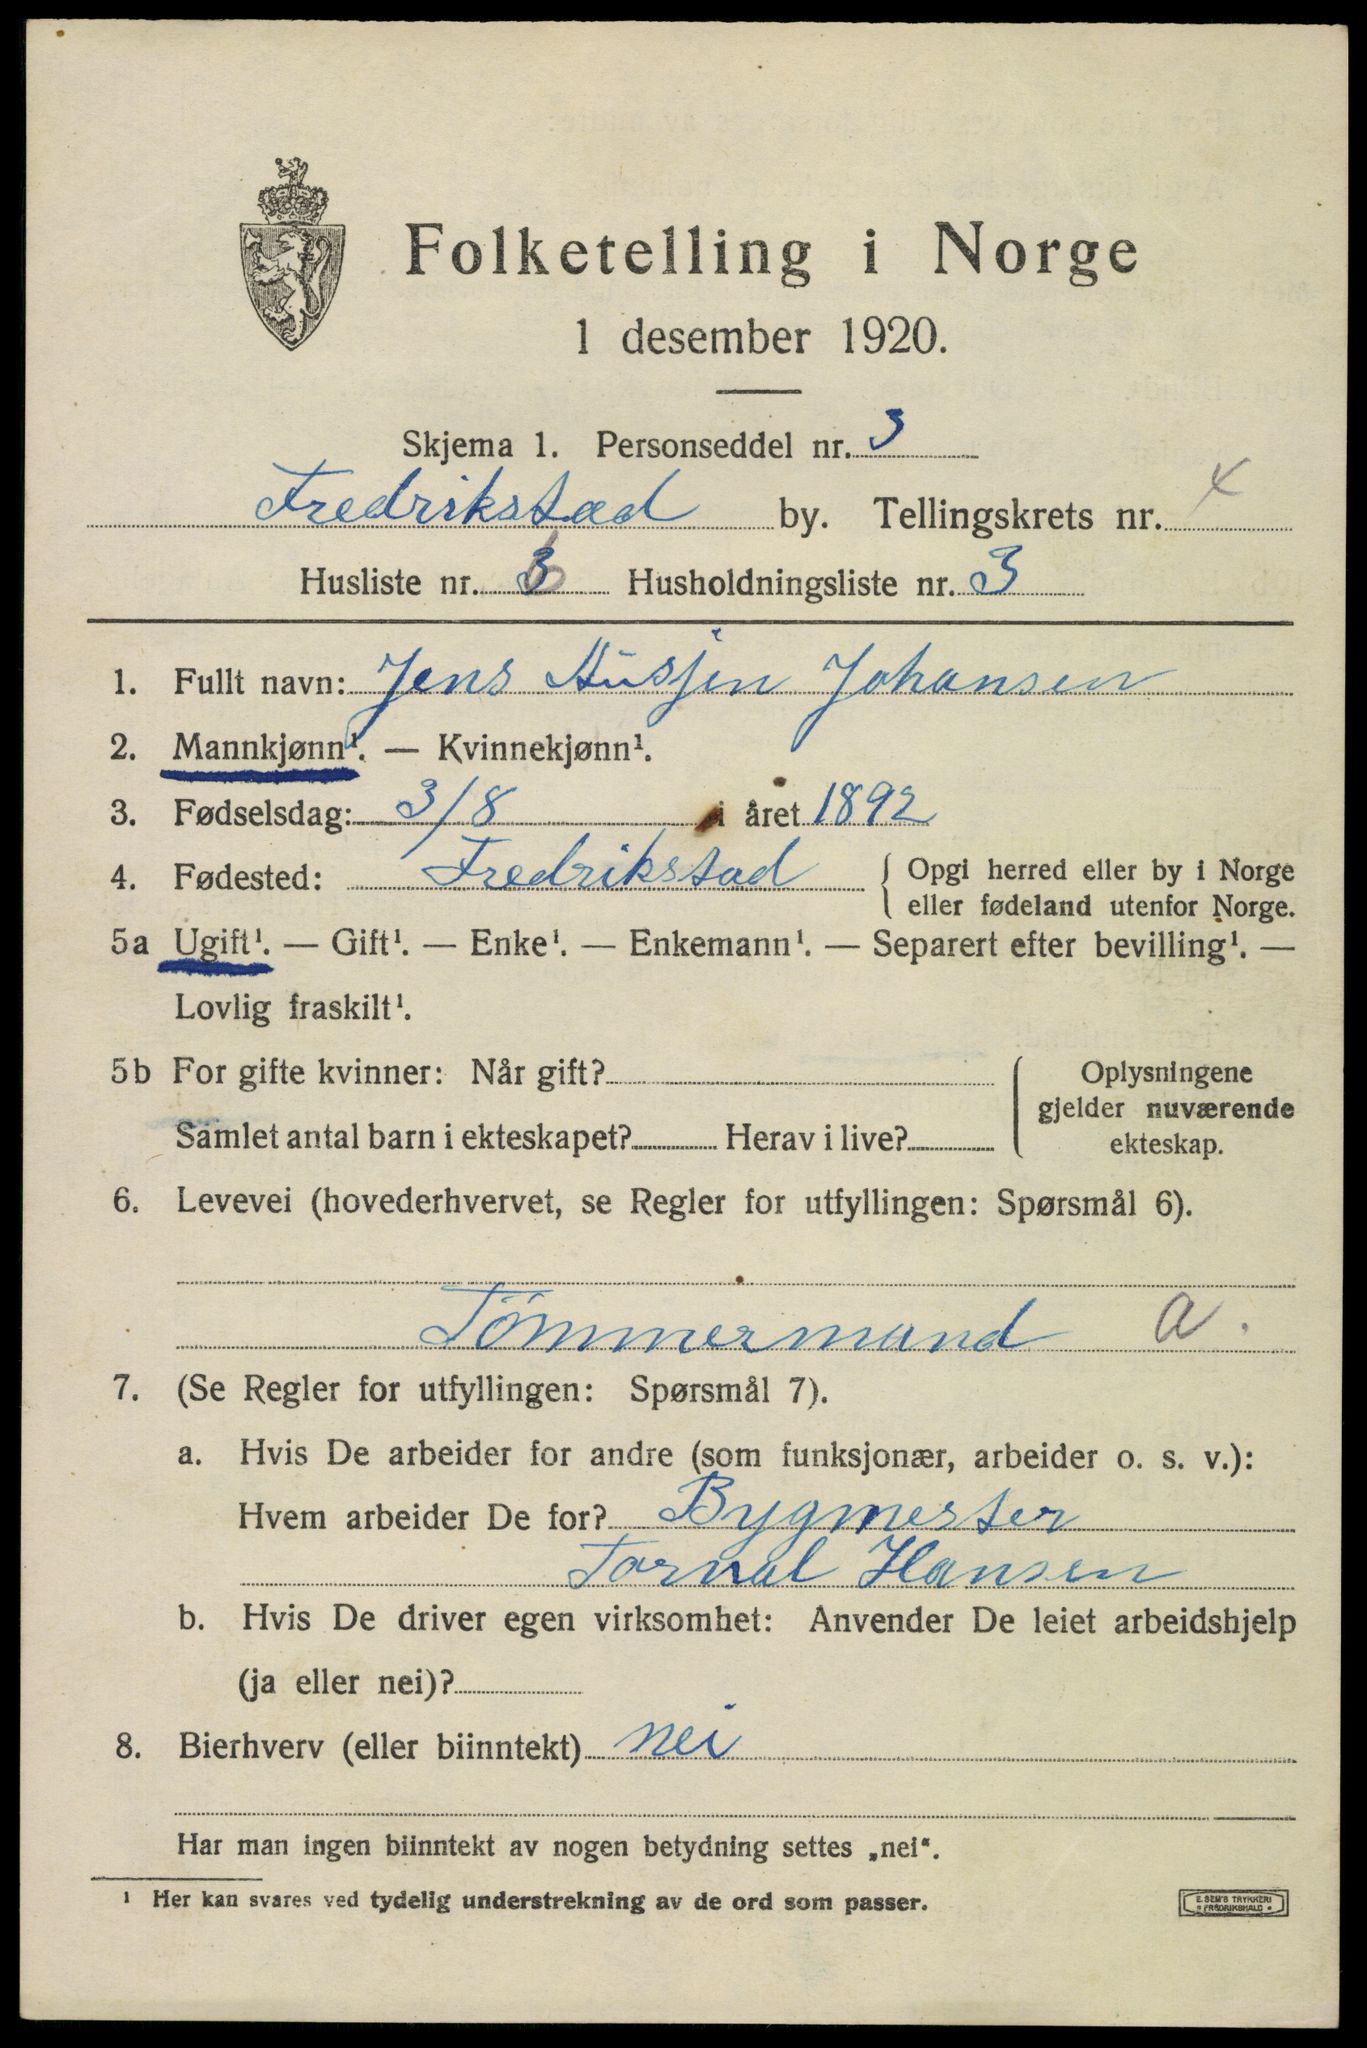 Folketelling i Norge
1 desember 1920.
Skjema 1. Personseddel nr. 3
Fredrikstad by. Tellingskrets nr.
Husliste nr. Husholdningsliste nr. 3
1. Fullt navn: Jens Johansen
2. Mannkjønn¹. — Kvinnekjønn¹.
3. Fødselsdag: 3/8 i året 1892
4. Fødested: Fredrikstad { Opgi herred eller by i Norge
eller fødeland utenfor Norge.
5a Ugift¹. — Gift¹. — Enke¹. — Enkemann¹. — Separert efter bevilling¹. —
Lovlig fraskilt¹.
5b For gifte kvinner: Når gift? { Oplysningene
gjelder nuværende
Samlet antal barn i ekteskapet? Herav i live?
ekteskap.
6. Levevei (hovederhvervet, se Regler for utfyllingen: Spørsmål 6).
Tömmermand a.
7. (Se Regler for utfyllingen: Spørsmål 7).
a. Hvis De arbeider for andre (som funksjonær, arbeider o. s. v.):
Hvem arbeider De for? Bygmester
Hansen
b. Hvis De driver egen virksomhet: Anvender De leiet arbeidshjelp
(ja eller nei)?
8. Bierhverv (eller biinntekt) nei
Har man ingen biinntekt av nogen betydning settes „nei“.
¹ Her kan svares ved tydelig understrekning av de ord som passer.
E. SEM'S TRYKKERI
FREDRIKSHALD